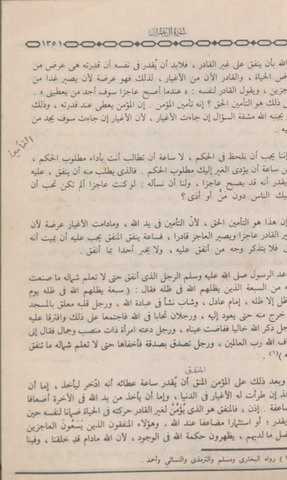 سورة آل عمران
١٣٥١
الله بأن ينفق على غير القادر ، فلابد أن يُقدر فى نفسه أن قدرته هى عرض من
ض الحياة ، والقادر الآن من الأغيار ، لذلك فهو عرضة لأن يصير غدا من
جزين ، ويقول القادر لنفسه : « عندما أصبح عاجزا سوف أجد من يعطينى » .
ذلك هو التأمين الحق ؟ إنه تأمين المؤمن . إن المؤمن يعطى عند قدرته ، وذلك
يجنبه الله مشقة السؤال إن جاءت الأغيار ، لأن الأغيار إن جاءت سوف يجد من
يه .
التأمين
إننا يجب أن نلحظ فى الحكم ، لا ساعة أن تطالب أنت بأداء مطلوب الحكم ،
ن ساعة أن يؤدى الغير إليك مطلوب الحكم . فالذى يطلب منه أن ينفق ، عليه
يقدر أنه قد يصبح عاجزا ، ولنا أن نسأله : لو كنت عاجزا ألم تكن تحب أن
ليك الناس دون مَنٍّ أو أذى ؟
إن هذا هو التأمين الحق ، لأن التأمين فى يد الله ، ومادامت الأغيار عرضة لأن
ر القادر عاجزا ويصير العاجز قادرا ، فساعة ينفق المنفق يجب عليه أن يميت أنه
، فلا يتذكر وجه من أنفق عليه ، ولا يخبر أحدا بما أنفق .
عد الرسول صل الله عليه وسلم الرجل الذى أنفق حتى لا تعلم شماله ما صنعت
ه من السبعة الذين يظلهم الله فى ظله فقال : ( سبعة يظلهم الله فى ظله يوم
ظل إلا ظله ، إمام عادل ، وشاب نشأ فى عبادة الله ، ورجل قلبه معلق بالمسجد
خرج منه حتى يعود إليه ، ورجلان تحابا فى الله فاجتمعا على ذلك وافترقا عليه
جل ذكر الله خاليا ففاضت عيناه ، ورجل دعته امرأة ذات منصب وجمال فقال إنى
ف الله رب العالمين ، ورجل تصدق بصدقة فأخفاها حتى لا تعلم شماله ما تنفق
ه )(١) .
المنفق
وبعد ذلك على المؤمن المنفق أن يُقدر ساعة عطائه أنه ادخر ليأخذ ، إما أن
خذ إن طرأت له الأغيار فى الدنيا ، وإما أن يأخذ من يد الله فى الآخرة أضعافا
عفة . إذن ، فالمنفق هو الذى يُؤَمِّنُ لغير القادر حركته فى الحياة ضمانا لنفسه حين
يقدر ؛ أو استثمارا مضاعفا عند الله . وهؤلاء المنفقون الذين يَسَعُونَ العاجزين
ضل ما لديهم ، يظهرون حكمة الله فى الوجود ، لأن الله مادام قد خلقنا ، وفينا
) رواه البخارى ومسلم والترمذى والنسائى وأحمد .